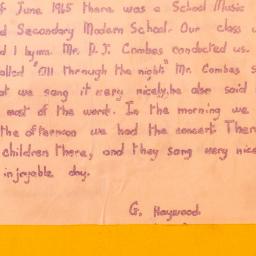 f June 1965 there was a School Music
d Secondary Modern School. Our class w
d 1 hymn. Mr. D.J. Combes conducted us.
alled "All through the night" Mr. Combes s
at we sang it very nicely, he also said
most of the words. In the morning we
the afternoon we had the concert. There
children there, and they sang very nice
injoyable day.
G. Haywood.